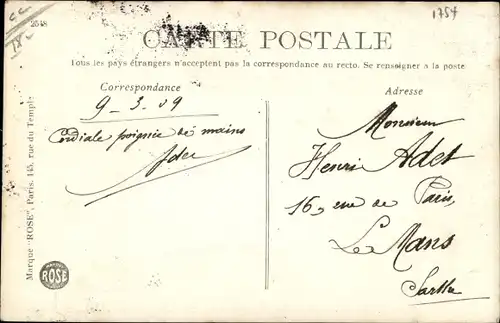 2548
1754
CARTE POSTALE
Tous les pays étrangers n'acceptent pas la correspondance au recto. Se renseigner à la poste
Correspondance
Adresse
9-3-09
Cordiale poignée de mains
Monsieur
Henri Adet
16, rue de Paris,
Le Mans
Sarthe
Marque "ROSE", Paris. 145, rue du Temple
ROSE